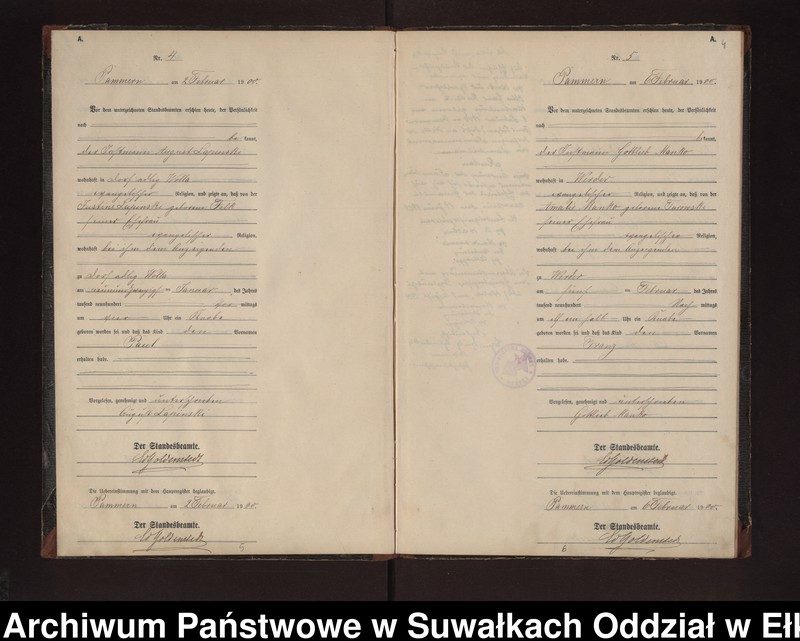 A.
Nr. 4
Pammern am 2 Februar 1900.
Vor dem unterzeichneten Standesbeamten erschien heute, der Persönlichkeit
nach
be kannt,
der Instmann August Lapinski
wohnhaft in Dorf adlig Wolla
evangelischer Religion, und zeigte an, daß von der
Justine Lapinski geborene
seiner Ehefrau
evangelischer Religion,
wohnhaft bei ihm dem Anzeigenden
zu Dorf adlig Wolla
am neunundzwanzig ten Januar des Jahres
tausend neunhundert mittags
um Uhr ein Knabe
geboren worden sei und daß das Kind den Vornamen
Paul
erhalten habe.
Vorgelesen, genehmigt und unterschrieben
August Lapinski
Der Standesbeamte.
Goldenstedt
Die Uebereinstimmung mit dem Hauptregister beglaubigt.
Pammern am 2 Februar 1900.
Der Standesbeamte.
Goldenstedt
5
A.
4
Nr. 5
Pammern am 6 Februar 1900.
Vor dem unterzeichneten Standesbeamten erschien heute, der Persönlichkeit
nach
be kannt,
der Instmann Gottlieb Manko
wohnhaft in Werder
evangelischer Religion, und zeigte an, daß von der
Amalie Manko geborene
seiner Ehefrau
evangelischer Religion,
wohnhaft bei ihm dem Anzeigenden
zu Werder
am fünf ten Februar des Jahres
tausend neunhundert Nach mittags
um ein halb Uhr ein Knabe
geboren worden sei und daß das Kind den Vornamen
Franz
erhalten habe.
Vorgelesen, genehmigt und unterschrieben
Gottlieb Manko
Der Standesbeamte.
Goldenstedt
Die Uebereinstimmung mit dem Hauptregister beglaubigt.
Pammern am 6 Februar 1900.
Der Standesbeamte.
Goldenstedt
6
Archiwum Państwowe w Suwałkach Oddział w Eł